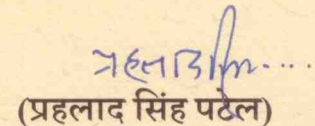 (प्रहलाद सिंह पटेल)